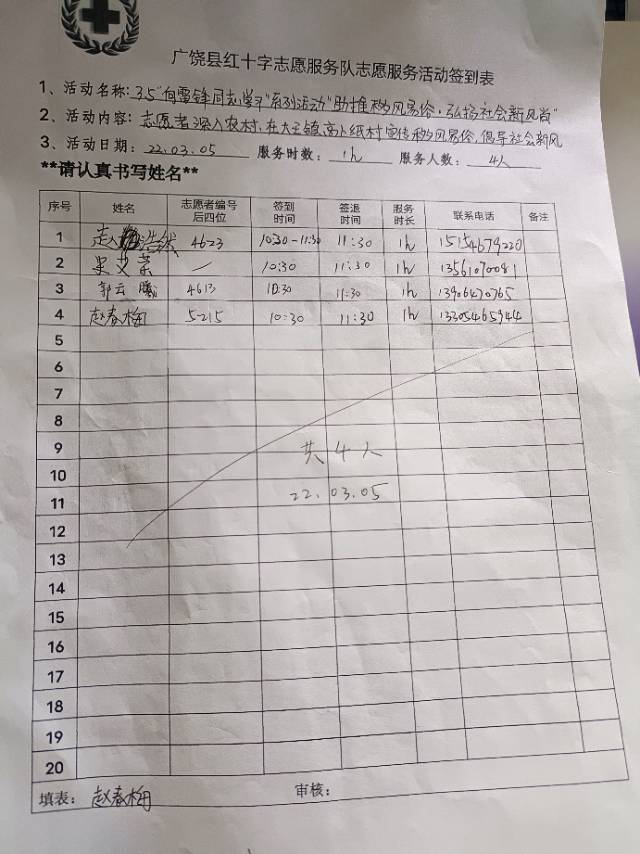 广饶县红十字志愿服务队志愿服务活动签到表
1、活动名称：3.5"向雷锋同志学习"系列活动"助推移风易俗，弘扬社会新风尚"
2、活动内容：志愿者深入农村，在大王镇高卜纸村宣传移风易俗，倡导社会新风
3、活动日期：22.03.05 服务时数：1h 服务人数：4人
**请认真书写姓名**
序号 姓名 志愿者编号后四位 签到时间 签退时间 服务时长 联系电话 备注
1 浩然 4623 10:30-11:30 11:30 1h 15154679220
2 荣 — 10:30 11:30 1h 13561070081
3 郭云腾 4613 10:30 11:30 1h 13906470765
4 赵春梅 5215 10:30 11:30 1h 13305465944
5
6
7
8
9 共4人
10
11 22.03.05
12
13
14
15
16
17
18
19
20
填表：赵春梅 审核：